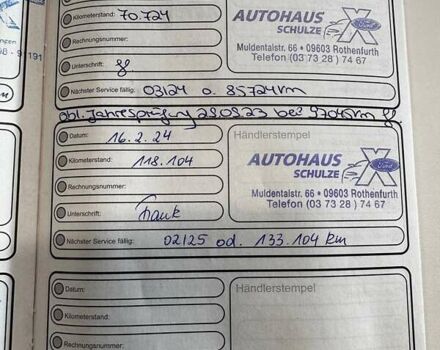 Kilometerstand: 70.724
AUTOHAUS
SCHULZE
Ford
Rechnungsnummer:
Muldentalstr. 66 • 09603 Rothenfurth
Telefon (03 73 28) 74 67
Unterschrift:
Nächster Service fällig: 03/24 o. 85724km
obl. Jahresprüfung 29.09.23 bei 97045km
Datum: 16.2.24
Händlerstempel
Kilometerstand: 118.104
AUTOHAUS
SCHULZE
Ford
Rechnungsnummer:
Muldentalstr. 66 • 09603 Rothenfurth
Telefon (03 73 28) 74 67
Unterschrift: Frank
Nächster Service fällig: 02/25 od. 133.104 km
Datum:
Händlerstempel
Kilometerstand:
Rechnungsnummer: